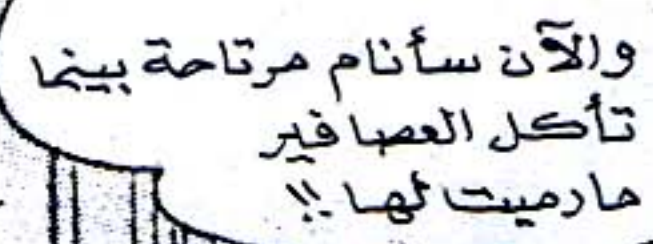 والآن سأنام مرتاحة بينما
تأكل العصافير
مارميت لها !!